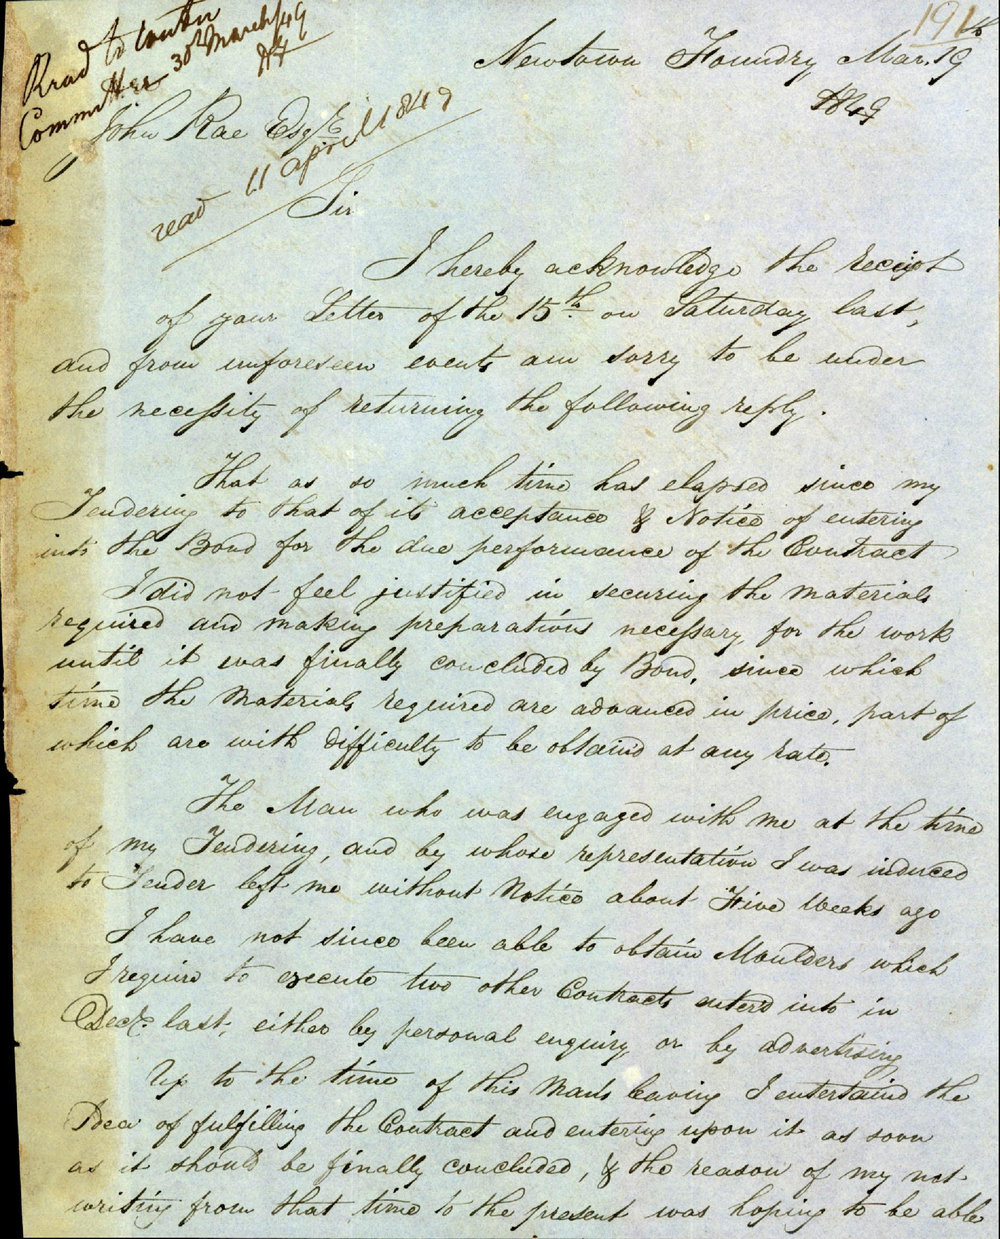 Read to
Committee 30th March/49
191
Newtown Foundry Mar. 19
1849
John Rae Esqre
read 11 april 1849
Sir
I hereby acknowledge the receipt
of your Letter of the 15th on Saturday last,
and from unforeseen events am sorry to be under
the necessity of returning the following reply.
That as so much time has elapsed since my
Tendering to that of its acceptance & Notice of entering
into the Bond for the due performance of the Contract
I did not feel justified in securing the materials
required and making preparations necessary for the work
until it was finally concluded by Bond, since which
time the Materials required are advanced in price, part of
which are with difficulty to be obtain'd at any rate.
The Man who was engaged with me at the time
of my Tendering, and by whose representation I was induced
to Tender left me without Notice about Five Weeks ago
I have not since been able to obtain Moulders which
I require to execute two other Contracts enter'd into in
Decr. last, either by personal enquiry or by advertising
Up to the time of this Man's leaving I entertain'd the
Idea of fulfilling the Contract and entering upon it as soon
as it should be finally concluded, & the reason of my not
writing from that time to the present was hoping to be able